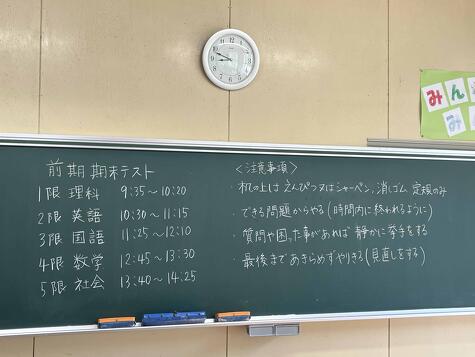 みん
前期 期末テスト
1限 理科 9:35～10:20
2限 英語 10:30～11:15
3限 国語 11:25～12:10
4限 数学 12:45～13:30
5限 社会 13:40～14:25
＜注意事項＞
・机の上は えんぴつ又はシャーペン、消しゴム、定規のみ
・できる問題からやる(時間内に終われるように)
・質問や困った事があれば 静かに挙手をする
・最後まであきらめずやりきる(見直しをする)